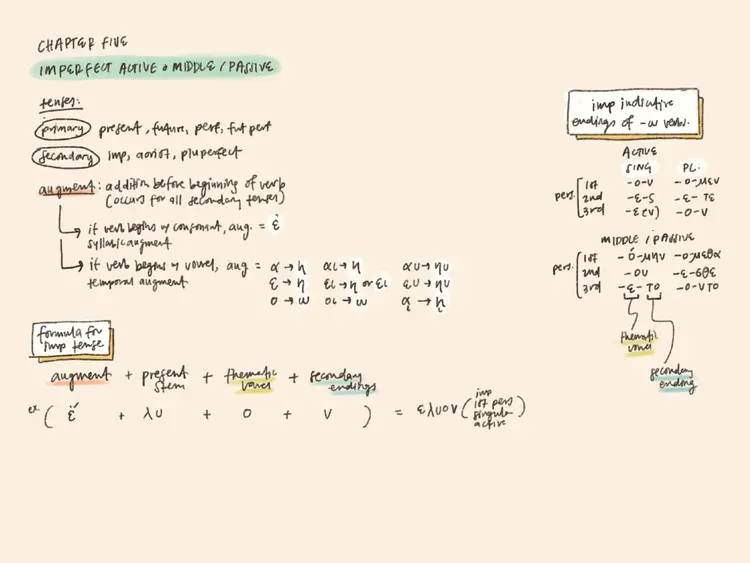 CHAPTER FIVE
IMPERFECT ACTIVE & MIDDLE / PASSIVE
tenses:
primary present, future, perf, fut perf
secondary imp, aorist, pluperfect
augment: addition before beginning of verb
(occurs for all secondary tenses)
if verb begins w consonant, aug. = ἐ
syllabic augment
if verb begins w vowel, aug = α→η αι→ῃ αυ→ηυ
temporal augment ε→η ει→ῃ or ει ευ→ηυ
ο→ω οι→ῳ ᾳ→ῃ
formula for
imp tense
augment + present stem + thematic vowel + secondary endings
ex. ( ἐ + λυ + ο + ν ) = ελυον ( imp 1st pers singular active )
imp indicative
endings of -ω verbs.
ACTIVE
SING PL.
pers. 1st -ο-ν -ο-μεν
2nd -ε-ς -ε-τε
3rd -ε(ν) -ο-ν
MIDDLE / PASSIVE
pers. 1st -ό-μην -ο-μεθα
2nd -ου -ε-σθε
3rd -ε-το -ο-ντο
thematic
vowel
secondary
ending